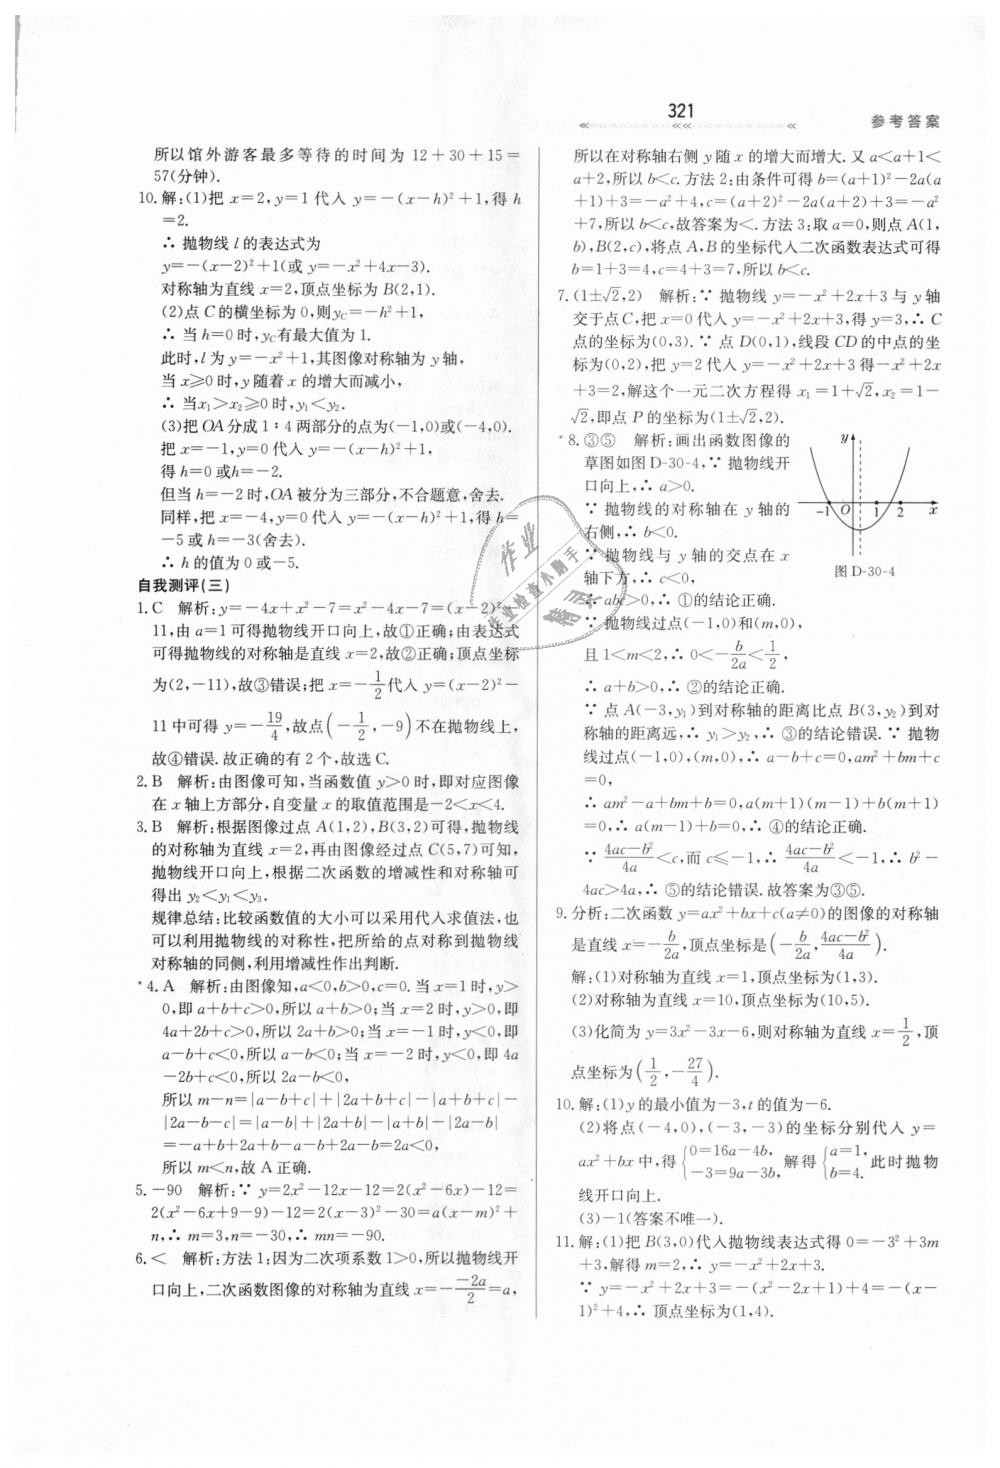 321
参考答案
所以馆外游客最多等待的时间为 12+30+15=
57(分钟).
10.解:(1)把 x=2,y=1 代入 y=-(x-h)²+1,得 h
=2.
∴ 抛物线 l 的表达式为
y=-(x-2)²+1(或 y=-x²+4x-3).
对称轴为直线 x=2,顶点坐标为 B(2,1).
(2)点 C 的横坐标为 0,则y_C=-h²+1,
∴ 当 h=0 时,y_C有最大值为 1.
此时,l 为 y=-x²+1,其图像对称轴为 y 轴,
当 x≥0 时,y 随着 x 的增大而减小,
∴ 当x₁>x₂≥0 时,y₁<y₂.
(3)把 OA 分成 1∶4 两部分的点为(-1,0)或(-4,0).
把 x=-1,y=0 代入 y=-(x-h)²+1,
得 h=0 或h=-2.
但当 h=-2 时,OA 被分为三部分,不合题意,舍去.
同样,把 x=-4,y=0 代入 y=-(x-h)²+1,得 h=
-5 或 h=-3(舍去).
∴ h 的值为 0 或-5.
自我测评(三)
1.C 解析:y=-4x+x²-7=x²-4x-7=(x-2)²-
11,由 a=1 可得抛物线开口向上,故①正确;由表达式
可得抛物线的对称轴是直线 x=2,故②正确;顶点坐标
为(2,-11),故③错误;把 x=-1/2代入 y=(x-2)²-
11 中可得 y=-19/4,故点(-1/2,-9)不在抛物线上,
故④错误.故正确的有 2 个,故选C.
2.B 解析:由图像可知,当函数值 y>0 时,即对应图像
在 x 轴上方部分,自变量 x 的取值范围是-2<x<4.
3.B 解析:根据图像过点 A(1,2),B(3,2)可得,抛物线
的对称轴为直线 x=2,再由图像经过点 C(5,7)可知,
抛物线开口向上,根据二次函数的增减性和对称轴可
得出 y₂<y₁<y₃.
规律总结:比较函数值的大小可以采用代入求值法,也
可以利用抛物线的对称性,把所给的点对称到抛物线
对称轴的同侧,利用增减性作出判断.
*4.A 解析:由图像知,a<0,b>0,c=0.当 x=1 时,y>
0,即 a+b+c>0,所以 a+b>0;当 x=2 时,y>0,即
4a+2b+c>0,所以 2a+b>0;当 x=-1 时,y<0,即
a-b+c<0,所以 a-b<0;当 x=-2 时,y<0,即 4a
-2b+c<0,所以 2a-b<0,
所以 m-n=|a-b+c|+|2a+b+c|-|a+b+c|-
|2a-b-c|=|a-b|+|2a+b|-|a+b|-|2a-b|
=-a+b+2a+b-a-b+2a-b=2a<0,
所以 m<n,故 A 正确.
5.-90 解析:∵ y=2x²-12x-12=2(x²-6x)-12=
2(x²-6x+9-9)-12=2(x-3)²-30=a(x-m)²+
n,∴ m=3,n=-30,∴ mn=-90.
6.< 解析:方法 1:因为二次项系数 1>0,所以抛物线开
口向上,二次函数图像的对称轴为直线 x=-(-2a)/2=a,
所以在对称轴右侧 y 随 x 的增大而增大.又 a<a+1<
a+2,所以 b<c.方法 2:由条件可得 b=(a+1)²-2a(a
+1)+3=-a²+4,c=(a+2)²-2a(a+2)+3=-a²
+7,所以 b<c,故答案为<.方法 3:取 a=0,则点 A(1,
b),B(2,c),将点 A,B 的坐标代入二次函数表达式可得
b=1+3=4,c=4+3=7,所以 b<c.
7.(1±√2,2) 解析:∵ 抛物线 y=-x²+2x+3 与 y 轴
交于点 C,把 x=0 代入 y=-x²+2x+3,得 y=3,∴ C
点的坐标为(0,3).∵ 点 D(0,1),线段 CD 的中点的坐
标为(0,2),把 y=2 代入 y=-x²+2x+3 得-x²+2x
+3=2,解这个一元二次方程得 x₁=1+√2,x₂=1-
√2,即点 P 的坐标为(1±√2,2).
*8.③⑤ 解析:画出函数图像的
草图如图 D-30-4,∵ 抛物线开
口向上,∴ a>0.
∵ 抛物线的对称轴在 y 轴的
右侧,∴ b<0.
∵ 抛物线与 y 轴的交点在 x
轴下方,∴ c<0,
∴ abc>0,∴ ①的结论正确.
∵ 抛物线过点(-1,0)和(m,0),
y
-1 O 1 2 x
图 D-30-4
且 1<m<2,∴ 0<-b/2a<1/2,
∴ a+b>0,∴ ②的结论正确.
∵ 点 A(-3,y₁)到对称轴的距离比点 B(3,y₂)到对
称轴的距离远,∴ y₁>y₂,∴ ③的结论错误.∵ 抛物
线过点(-1,0),(m,0),∴ a-b+c=0,am²+bm+c
=0,
∴ am²-a+bm+b=0,a(m+1)(m-1)+b(m+1)
=0,∴ a(m-1)+b=0,∴ ④的结论正确.
∵ (4ac-b²)/4a<c,而 c≤-1,∴ (4ac-b²)/4a<-1,∴ b²-
4ac>4a,∴ ⑤的结论错误.故答案为③⑤.
9.分析:二次函数 y=ax²+bx+c(a≠0)的图像的对称轴
是直线 x=-b/2a,顶点坐标是(-b/2a,(4ac-b²)/4a).
解:(1)对称轴为直线 x=1,顶点坐标为(1,3).
(2)对称轴为直线 x=10,顶点坐标为(10,5).
(3)化简为 y=3x²-3x-6,则对称轴为直线 x=1/2,顶
点坐标为(1/2,-27/4).
10.解:(1)y 的最小值为-3,t 的值为-6.
(2)将点(-4,0),(-3,-3)的坐标分别代入 y=
ax²+bx 中,得{0=16a-4b,-3=9a-3b,解得{a=1,b=4.此时抛物
线开口向上.
(3)-1(答案不唯一).
11.解:(1)把 B(3,0)代入抛物线表达式得 0=-3²+3m
+3,解得 m=2,∴ y=-x²+2x+3.
∵ y=-x²+2x+3=-(x²-2x+1)+4=-(x-
1)²+4,∴ 顶点坐标为(1,4).
作业
作业检查小助手
精灵